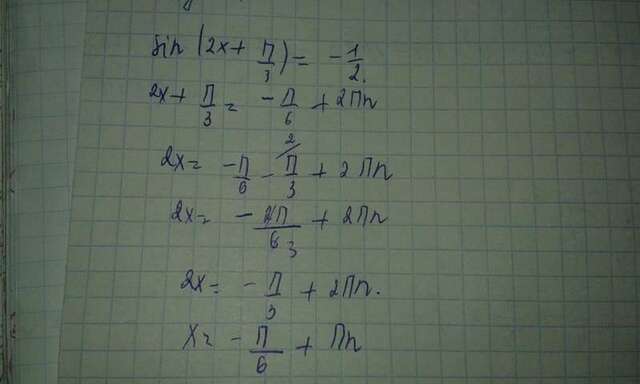 sin (2x + П/3) = - 1/2.
2x + П/3 = - П/6 + 2Пn
2x = - П/6 - П/3 2/ + 2Пn
2x = - 2П/6 3 + 2Пn
2x = - П/3 + 2Пn.
x = - П/6 + Пn